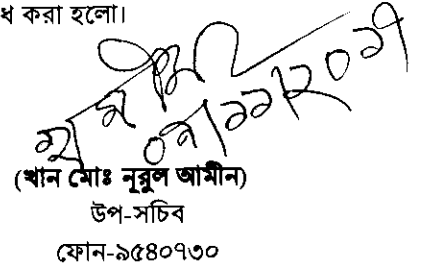 ধ করা হলো।
(খান মোঃ নূরুল আমীন)
উপ-সচিব
ফোন-৯৫৪০৭৩০